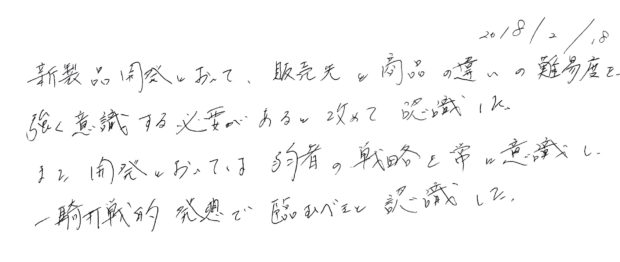 2018/2/18
新製品開発において、販売先と商品の違いの難易度を
強く意識する必要があると改めて認識した。
また開発においては弱者の戦略を常に意識し、
一騎打戦的発想で臨むべきと認識した。